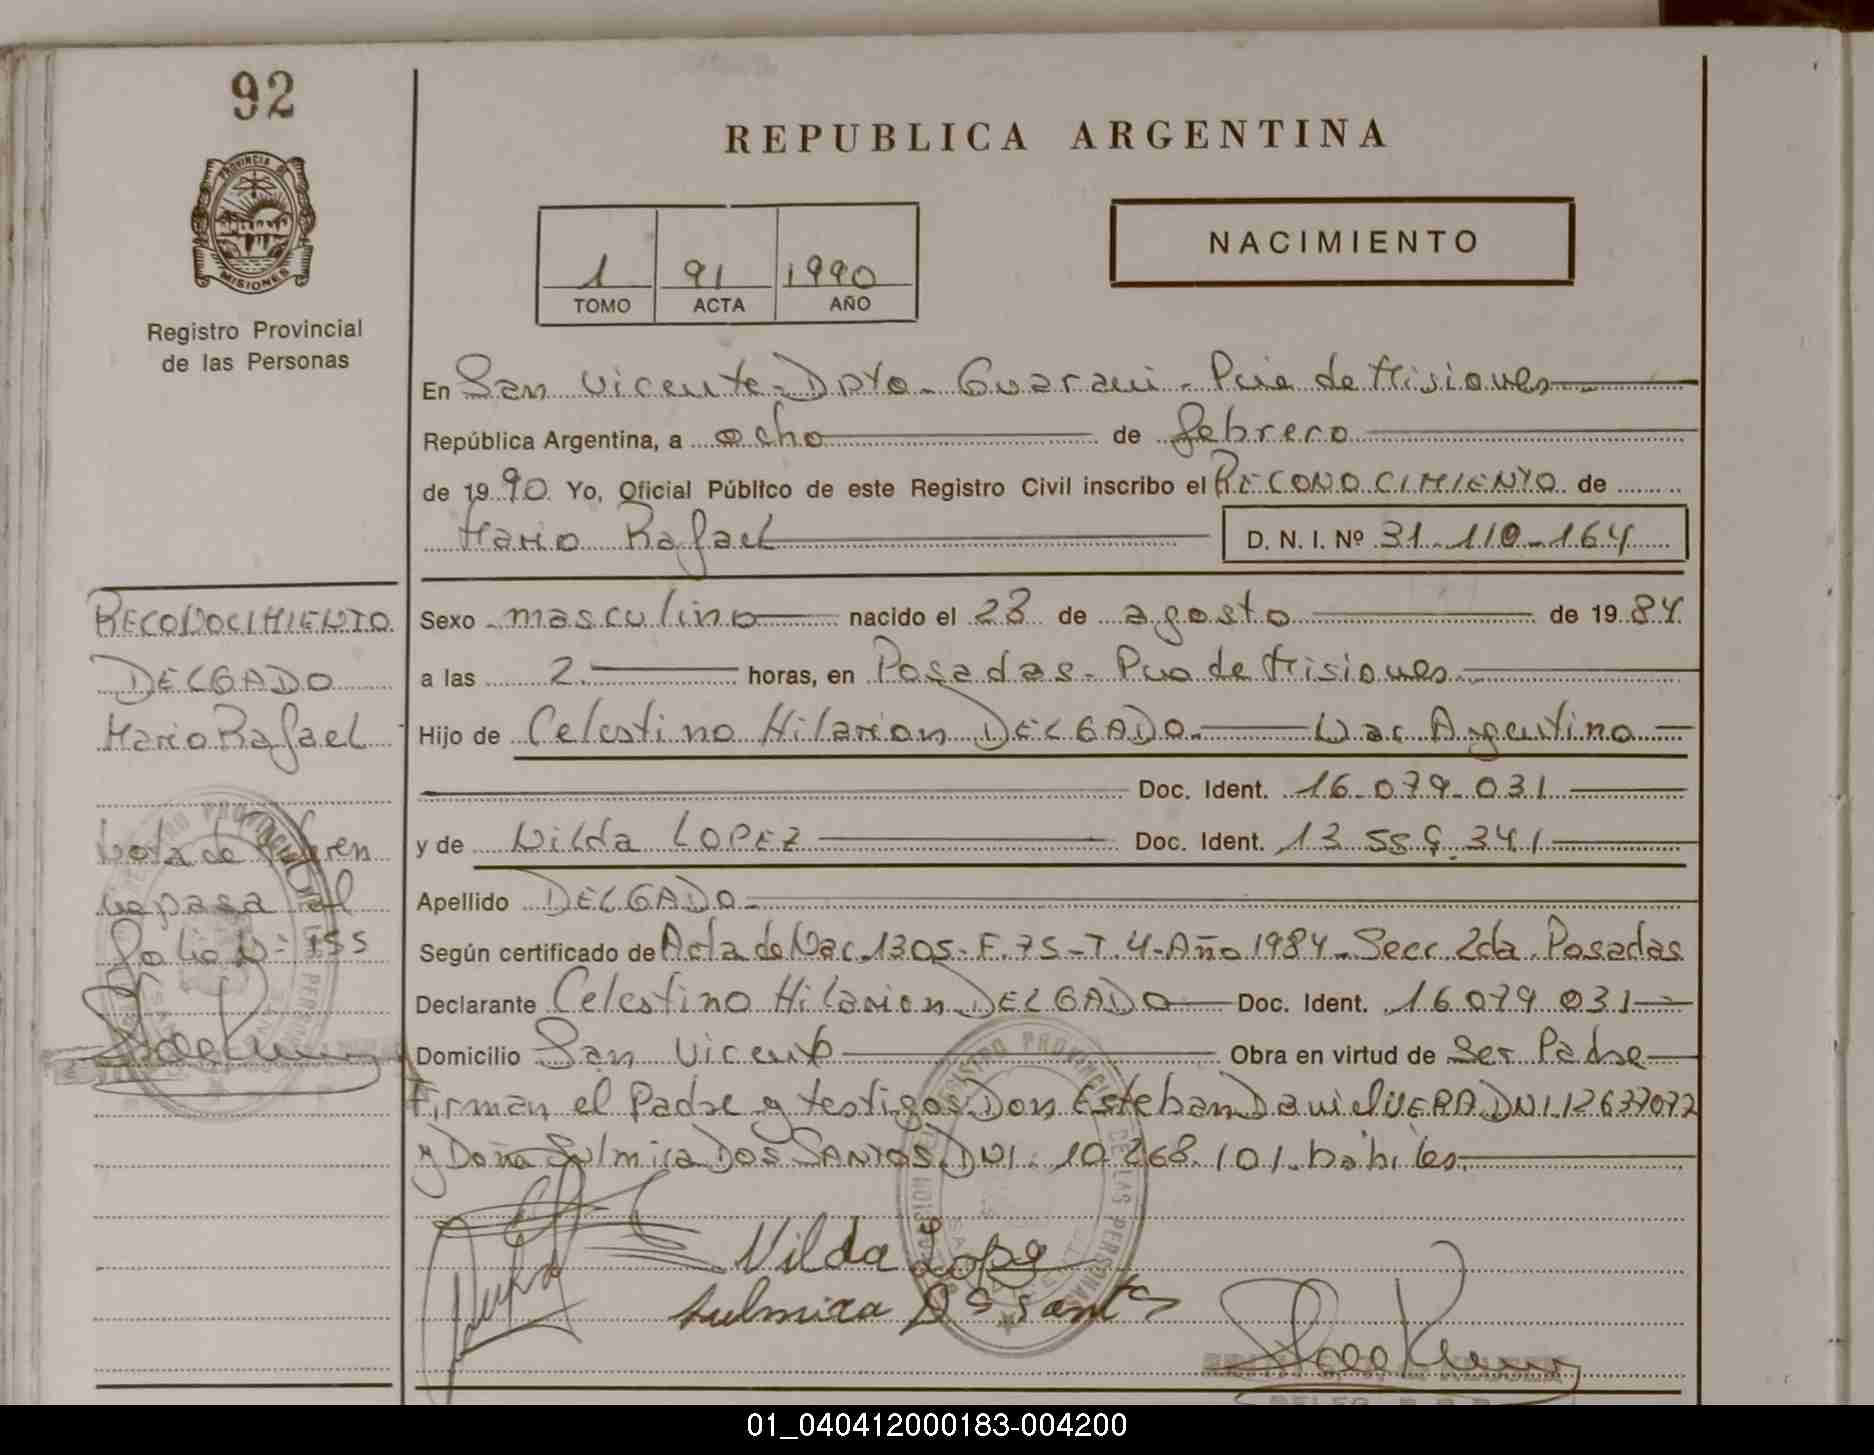 92
PROVINCIA DE
MISIONES
Registro Provincial
de las Personas
REPUBLICA ARGENTINA
1 91 1990
TOMO ACTA AÑO
NACIMIENTO
En San Vicente - Dpto - Guarani - Pcia de Misiones
República Argentina, a ocho de febrero
de 1990 Yo, Oficial Público de este Registro Civil inscribo el RECONOCIMIENTO de
Mario Rafael D. N. I. Nº 31-110-164
Sexo masculino nacido el 23 de agosto de 1984
a las 2 horas, en Posadas - Pcia de Misiones
Hijo de Celestino Hilarion DELGADO. Nac Argentino
Doc. Ident. 16.079.031
y de Nilda LOPEZ Doc. Ident. 13.559.341
Apellido DELGADO
Según certificado de Acta de Nac. 1305 - F. 75 - T. 4 - Año 1984 - Secc 2da. Posadas
Declarante Celestino Hilarion DELGADO Doc. Ident. 16.079.031
Domicilio San Vicente Obra en virtud de Ser Padre
Firman el Padre y testigos Don Esteban Daniel VERA DNI 12637072
y Doña Sulmira DOS SANTOS DNI. 10.268.101. habiles
Nilda Lope
Sulmira Ds sants
RECONOCIMIENTO
DELGADO
Mario Rafael
Nota de
pasa al
folio Nº 155
REGISTRO PROVINCIAL DE LAS PERSONAS
01_040412000183-004200